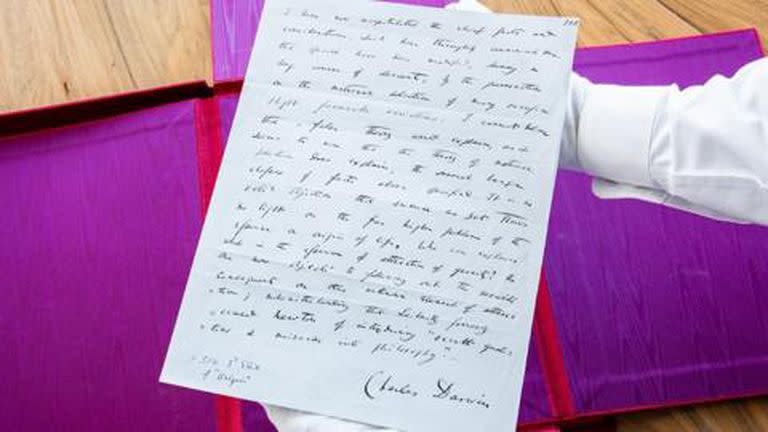 I have now recapitulated the chief facts and
considerations which have thoroughly convinced me
that species have been modified, during a
long course of descent, by the preservation
or the natural selection of many successive
slight favourable variations. I cannot believe
that a false theory would explain, as it
seems to me that the theory of natural
selection does explain, the several large
classes of facts above specified. It is no
valid objection that science as yet throws
no light on the far higher problem of the
essence or origin of life. Who can explain
what is the essence of attraction of gravity? No
one now objects to following out the results
consequent on this unknown element of attrac
-tion; notwithstanding that Leibnitz formerly
accused Newton of introducing "occult quali
-ties & miracles into philosophy".—
3d Edit
of "Origin"
Charles Darwin